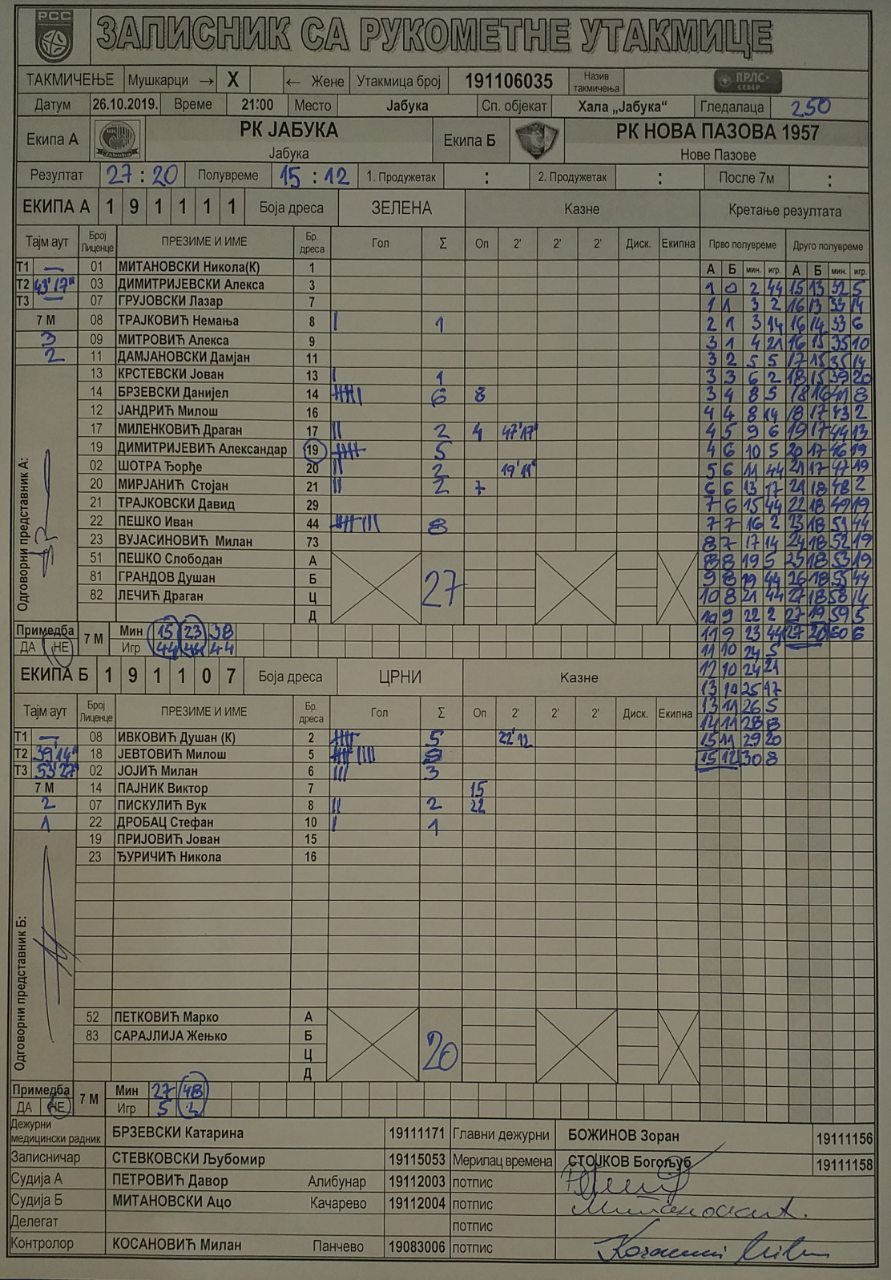 РСС
ЗАПИСНИК СА РУКОМЕТНЕ УТАКМИЦЕ
ТАКМИЧЕЊЕ Мушкарци → X ← Жене Утакмица број 191106035 Назив такмичења ПРЛС СЕВЕР
Датум 26.10.2019. Време 21:00 Место Јабука Сп. објекат Хала „Јабука“ Гледалаца 250
Екипа А РК ЈАБУКА Екипа Б РК НОВА ПАЗОВА 1957
Јабука Нове Пазове
Резултат 27 : 20 Полувреме 15 : 12 1. Продужетак : 2. Продужетак : После 7м :
ЕКИПА А 1 9 1 1 1 1 Боја дреса ЗЕЛЕНА Казне Кретање резултата
Тајм аут Број Лиценце ПРЕЗИМЕ И ИМЕ Бр. дреса Гол Σ Оп 2' 2' 2' Диск. Екипна Прво полувреме Друго полувреме
А Б мин. игр. А Б мин. игр.
Т1 — 01 МИТАНОВСКИ Никола(К) 1
Т2 43'17" 03 ДИМИТРИЈЕВСКИ Алекса 3 1 0 2 44 15 13 32 5
Т3 — 07 ГРУЈОВСКИ Лазар 7 1 1 3 2 16 13 33 14
7 М 08 ТРАЈКОВИЋ Немања 8 1 2 1 3 14 16 14 33 6
3 09 МИТРОВИЋ Алекса 9 3 1 4 21 16 15 35 10
2 11 ДАМЈАНОВСКИ Дамјан 11 3 2 5 5 17 15 35 14
13 КРСТЕВСКИ Јован 13 1 3 3 6 2 18 15 39 20
14 БРЗЕВСКИ Данијел 14 6 8 3 4 8 5 18 16 41 8
12 ЈАНДРИЋ Милош 16 4 4 8 14 18 17 43 2
17 МИЛЕНКОВИЋ Драган 17 2 4 47'17" 4 5 9 6 19 17 44 13
19 ДИМИТРИЈЕВИЋ Александар 19 5 4 6 10 5 20 17 46 19
02 ШОТРА Ђорђе 20 2 19'11" 5 6 11 44 21 17 47 19
20 МИРЈАНИЋ Стојан 21 2 7 6 6 13 17 21 18 48 2
21 ТРАЈКОВСКИ Давид 29 7 6 15 44 22 18 49 19
22 ПЕШКО Иван 44 8 7 7 16 2 23 18 51 44
23 ВУЈАСИНОВИЋ Милан 73 8 7 17 14 24 18 52 19
51 ПЕШКО Слободан А 8 8 19 5 25 18 53 19
81 ГРАНДОВ Душан Б 27 9 8 19 44 26 18 55 44
82 ЛЕЧИЋ Драган Ц 10 8 21 44 27 18 58 14
Д 10 9 22 2 27 19 59 5
Одговорни представник А:
Примедба 7 М Мин 15 23 38 11 9 23 44 27 20 60 6
ДА НЕ Игр 44 44 44 11 10 24 5
ЕКИПА Б 1 9 1 1 0 7 Боја дреса ЦРНИ Казне 12 10 24 21
13 10 25 17
Тајм аут Број Лиценце ПРЕЗИМЕ И ИМЕ Бр. дреса Гол Σ Оп 2' 2' 2' Диск. Екипна 13 11 26 5
14 11 28 8
Т1 — 08 ИВКОВИЋ Душан (К) 2 5 22'12 15 11 29 20
Т2 39'14" 18 ЈЕВТОВИЋ Милош 5 9 15 12 30 8
Т3 53'27" 02 ЈОЈИЋ Милан 6 3
7 М 14 ПАЈНИК Виктор 7 15
2 07 ПИСКУЛИЋ Вук 8 2 22
1 22 ДРОБАЦ Стефан 10 1
19 ПРИЈОВИЋ Јован 15
23 ЂУРИЧИЋ Никола 16
Одговорни представник Б:
52 ПЕТКОВИЋ Марко А
83 САРАЈЛИЈА Жењко Б 20
Ц
Д
Примедба 7 М Мин 27 48
ДА НЕ Игр 5 2
Дежурни медицински радник БРЗЕВСКИ Катарина 19111171 Главни дежурни БОЖИНОВ Зоран 19111156
Записничар СТЕВКОВСКИ Љубомир 19115053 Мерилац времена СТОЈКОВ Богољуб 19111158
Судија А ПЕТРОВИЋ Давор Алибунар 19112003 потпис
Судија Б МИТАНОВСКИ Ацо Качарево 19112004 потпис
Делегат потпис
Контролор КОСАНОВИЋ Милан Панчево 19083006 потпис